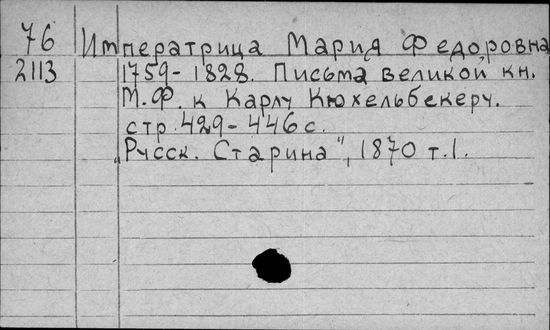 76 Императрица Мария Федоровна
2113 1759-1828. Письма великой кн.
М.Ф. к Карлу Кюхельбекеру.
стр. 429-446 с.
„Русск. Старина", 1870 т.1.